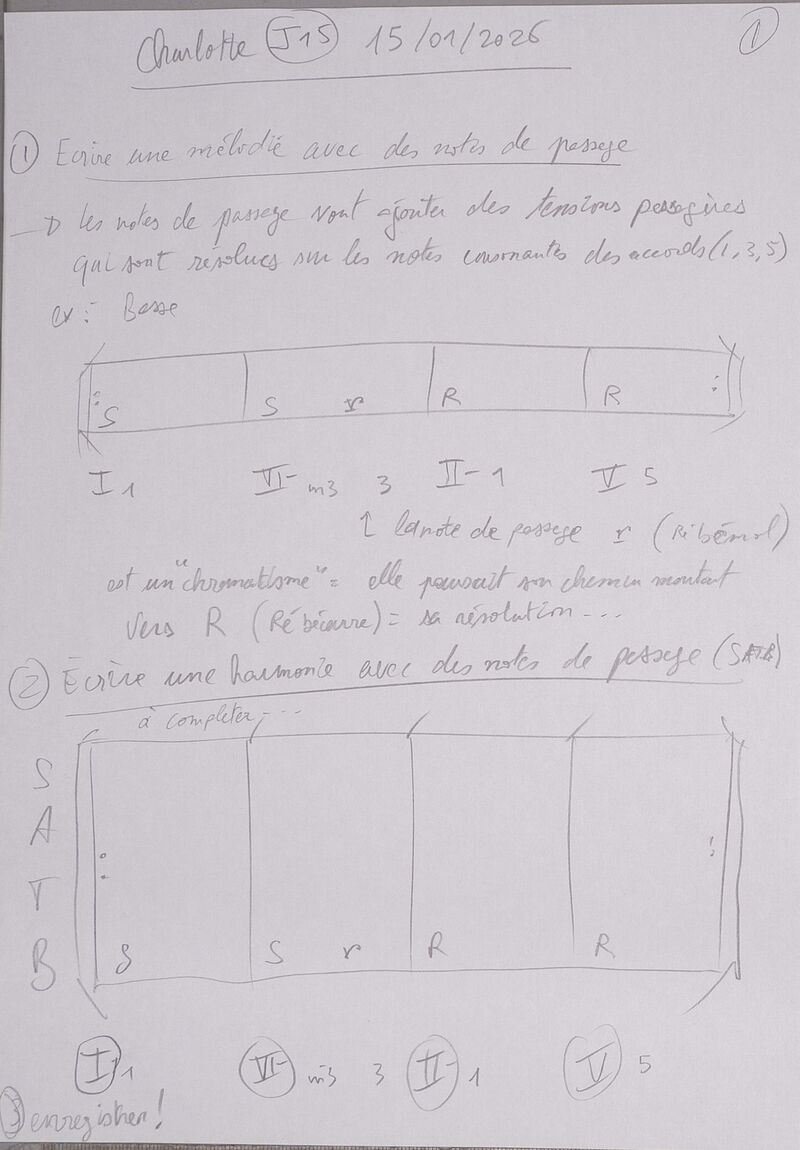 Charlotte J15 15/01/2026 1
① Ecrire une mélodie avec des notes de passage
→ Les notes de passage vont ajouter des tensions passagères
qui sont résolues sur les notes consonantes des accords (1, 3, 5)
ex : Basse
: S S r R R :
I 1 VI- m3 3 II- 1 V 5
↑ la note de passage r (Ré bémol)
est un "chromatisme" = elle poursuit son chemin montant
vers R (Ré bécarre) = sa résolution ...
② Écrire une harmonie avec des notes de passage (SATB)
à completer, ...
S
A
: :
T
B S S r R R
I 1 VI- m3 3 II- 1 V 5
③ enregistrer !